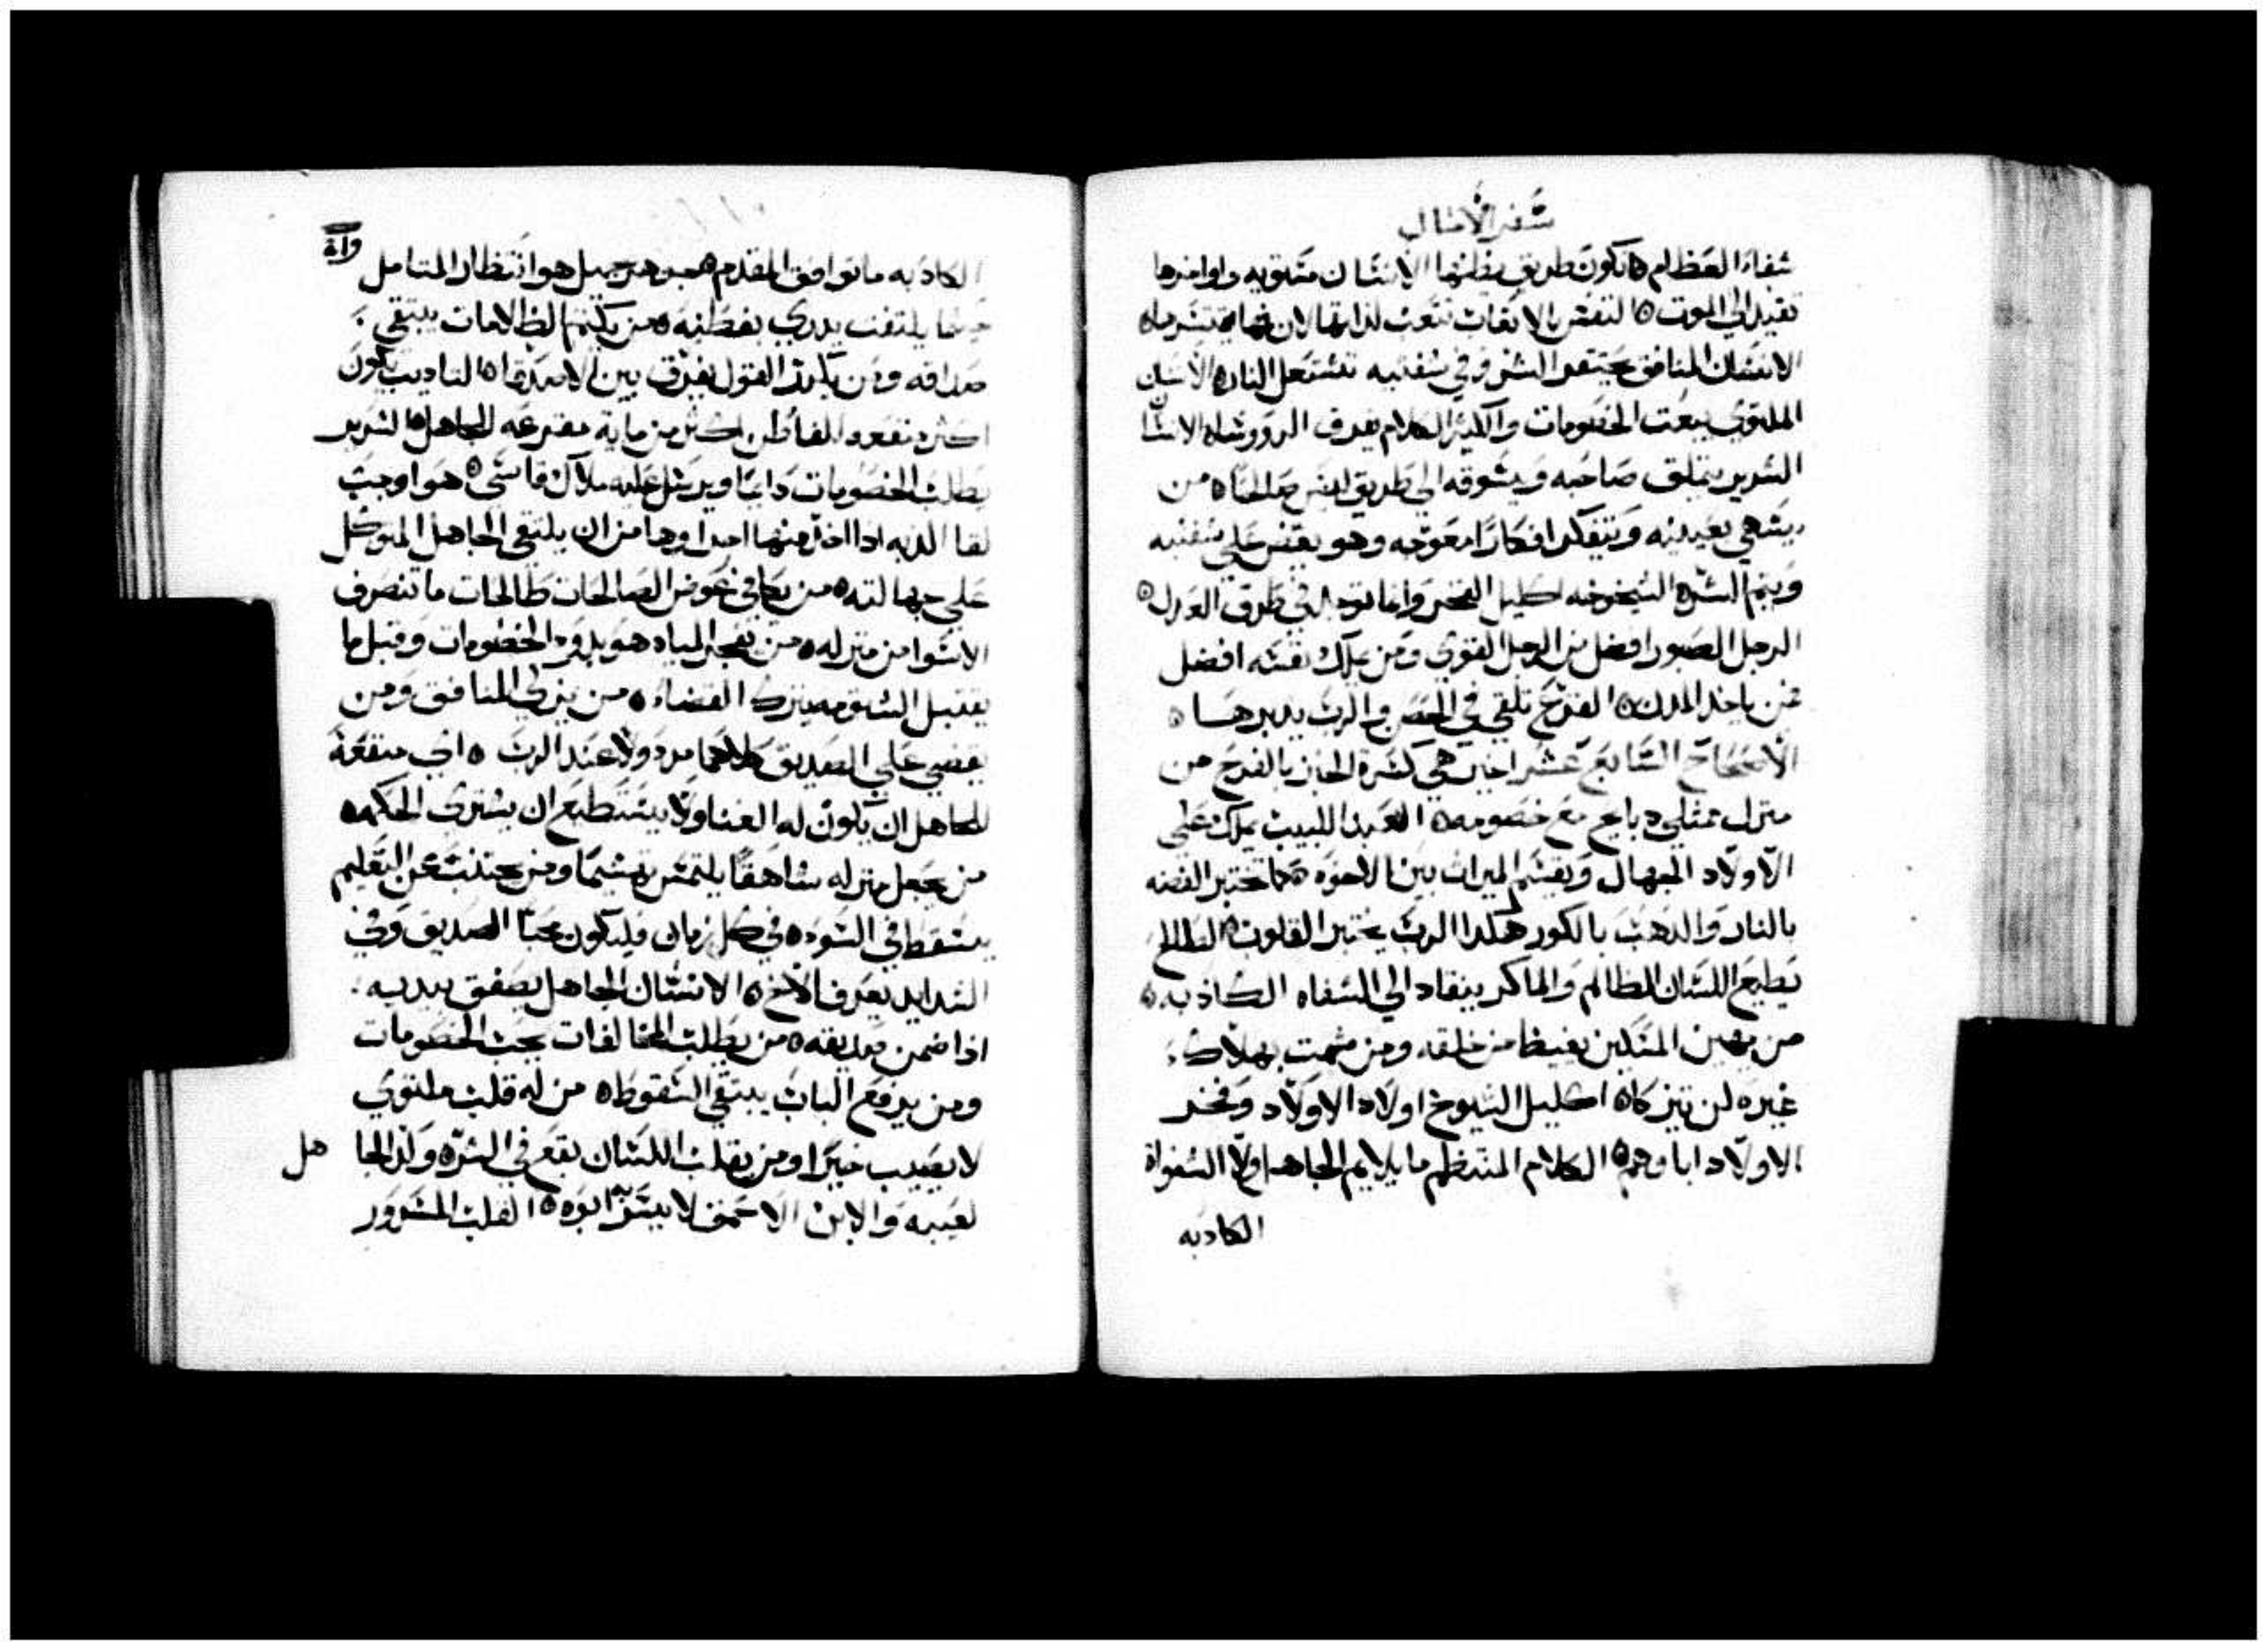 سفر الامثال
شفاء العظام ٥ تكون طريق يظنها الانسان مستويه واواخرها
تقيد الي الموت ٥ النفس بالاتعاب تتعب لذاتها لان فمها قسرها ٥
الانسان المنافق يحتفر الشر وفي شفتيه تشتعل النار ٥ الانسان
الملتوي يبعث الخصومات والكثير الكلام يفرق الرووسا ٥ الانسان
الشرير يتملق صاحبه ويشوقه الي طريق ليس صالحا ٥ من
يشهي بعينيه ويتفكر افكارا معوجه وهو يعض علي شفتيه
ويتم الشر ٥ الشيخوخه اكليل الفخر وانما توجد في طرق العدل ٥
الرجل الصبور افضل من الرجل القوي ومن يملك نفسه افضل
ممن ياخذ المدن ٥ القرع تلقي في الحضن والرب يدبرها ٥
الاصحاح السابع عشر اخير هي كسرة الخبز بالفرح من
منزل ممتلي دبايح مع خصومه ٥ العبد اللبيب يملك علي
الاولاد الجهال ويقسم الميراث بين الاخوه ٥ كما تختبر الفضه
بالنار والذهب بالكور هكدا الرب يختبر القلوب ٥ الطالح
يطيع اللسان الظالم والماكر ينقاد الي الشفاه الكاذبه ٥
من يهين المسكين يغيظ من خلقه ومن شمت بهلاك
غيره لن يتزكا ٥ اكليل الشيوخ اولاد الاولاد وفخر
الاولاد اباوهم ٥ الكلام المنتظم ما يلايم الجاهل ولا الشفواة
الكادبه
الكادبه ما توافق المقدم ٥ جوهر جميل هو انتظار المتامل
حيثما يلتفت يدري بفطنه ٥ من يكتم الظلامات يبتغي
صداقه ومن يكرر القول يفرق بين الاصدقا ٥ التاديب يكون
اكثر نفعا عند الفاطن اكثر من ماية مقرعه للجاهل ٥ الشرير
يطلب الخصومات دايما ويرسل عليه ملاك قاسي ٥ هو اوجب
لقا الدبه ادا اخذ منها اجراوها من ان يلتقي الجاهل المتوكل
علي جهالته ٥ من يكافي عوض الصالحات طالحات ما تنصرف
الاسوا من منزله ٥ من يفجر المياه هو بدو الخصومات وقبل ما
يقتبل الشتومه يترك القضاء ٥ من يزكي المنافق ومن
يقضي علي الصديق كلاهما مردولا عند الرب ٥ اي منفعة
للجاهل ان يكون له الغنا ولا يستطيع ان يشتري الحكمه ٥
من يجعل منزله شاهقا يلتمس تهشيما ومن يجتنب عن التعليم
يسقط في السوء ٥ في كل زمان فليكون محبا الصديق وفي
الشدايد يعرف الاخ ٥ الانسان الجاهل يصفق بيديه
اذا ضمن صديقه ٥ من يطلب المخالفات يحب الخصومات
ومن يرفع الباب يبتغي السقوط ٥ من له قلب ملتوي
لا يصيب خيرا ومن يقلب اللسان يقع في الشر ٥ ولد الجا هل
لعيبه والابن الاحمق لا يسر به ابوه ٥ القلب المسرور